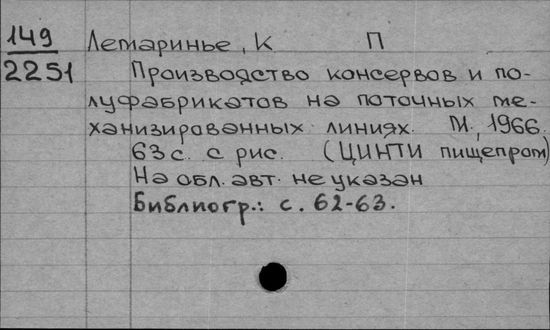 149 Летаринье, К П
2251 Производство консервов и по-
луфабрикатов на поточных ме-
ханизированных линиях. М., 1966.
63 с. с рис. (ЦИНТИ пищепром)
На обл. авт. не указан
Библиогр.: с. 62-63.